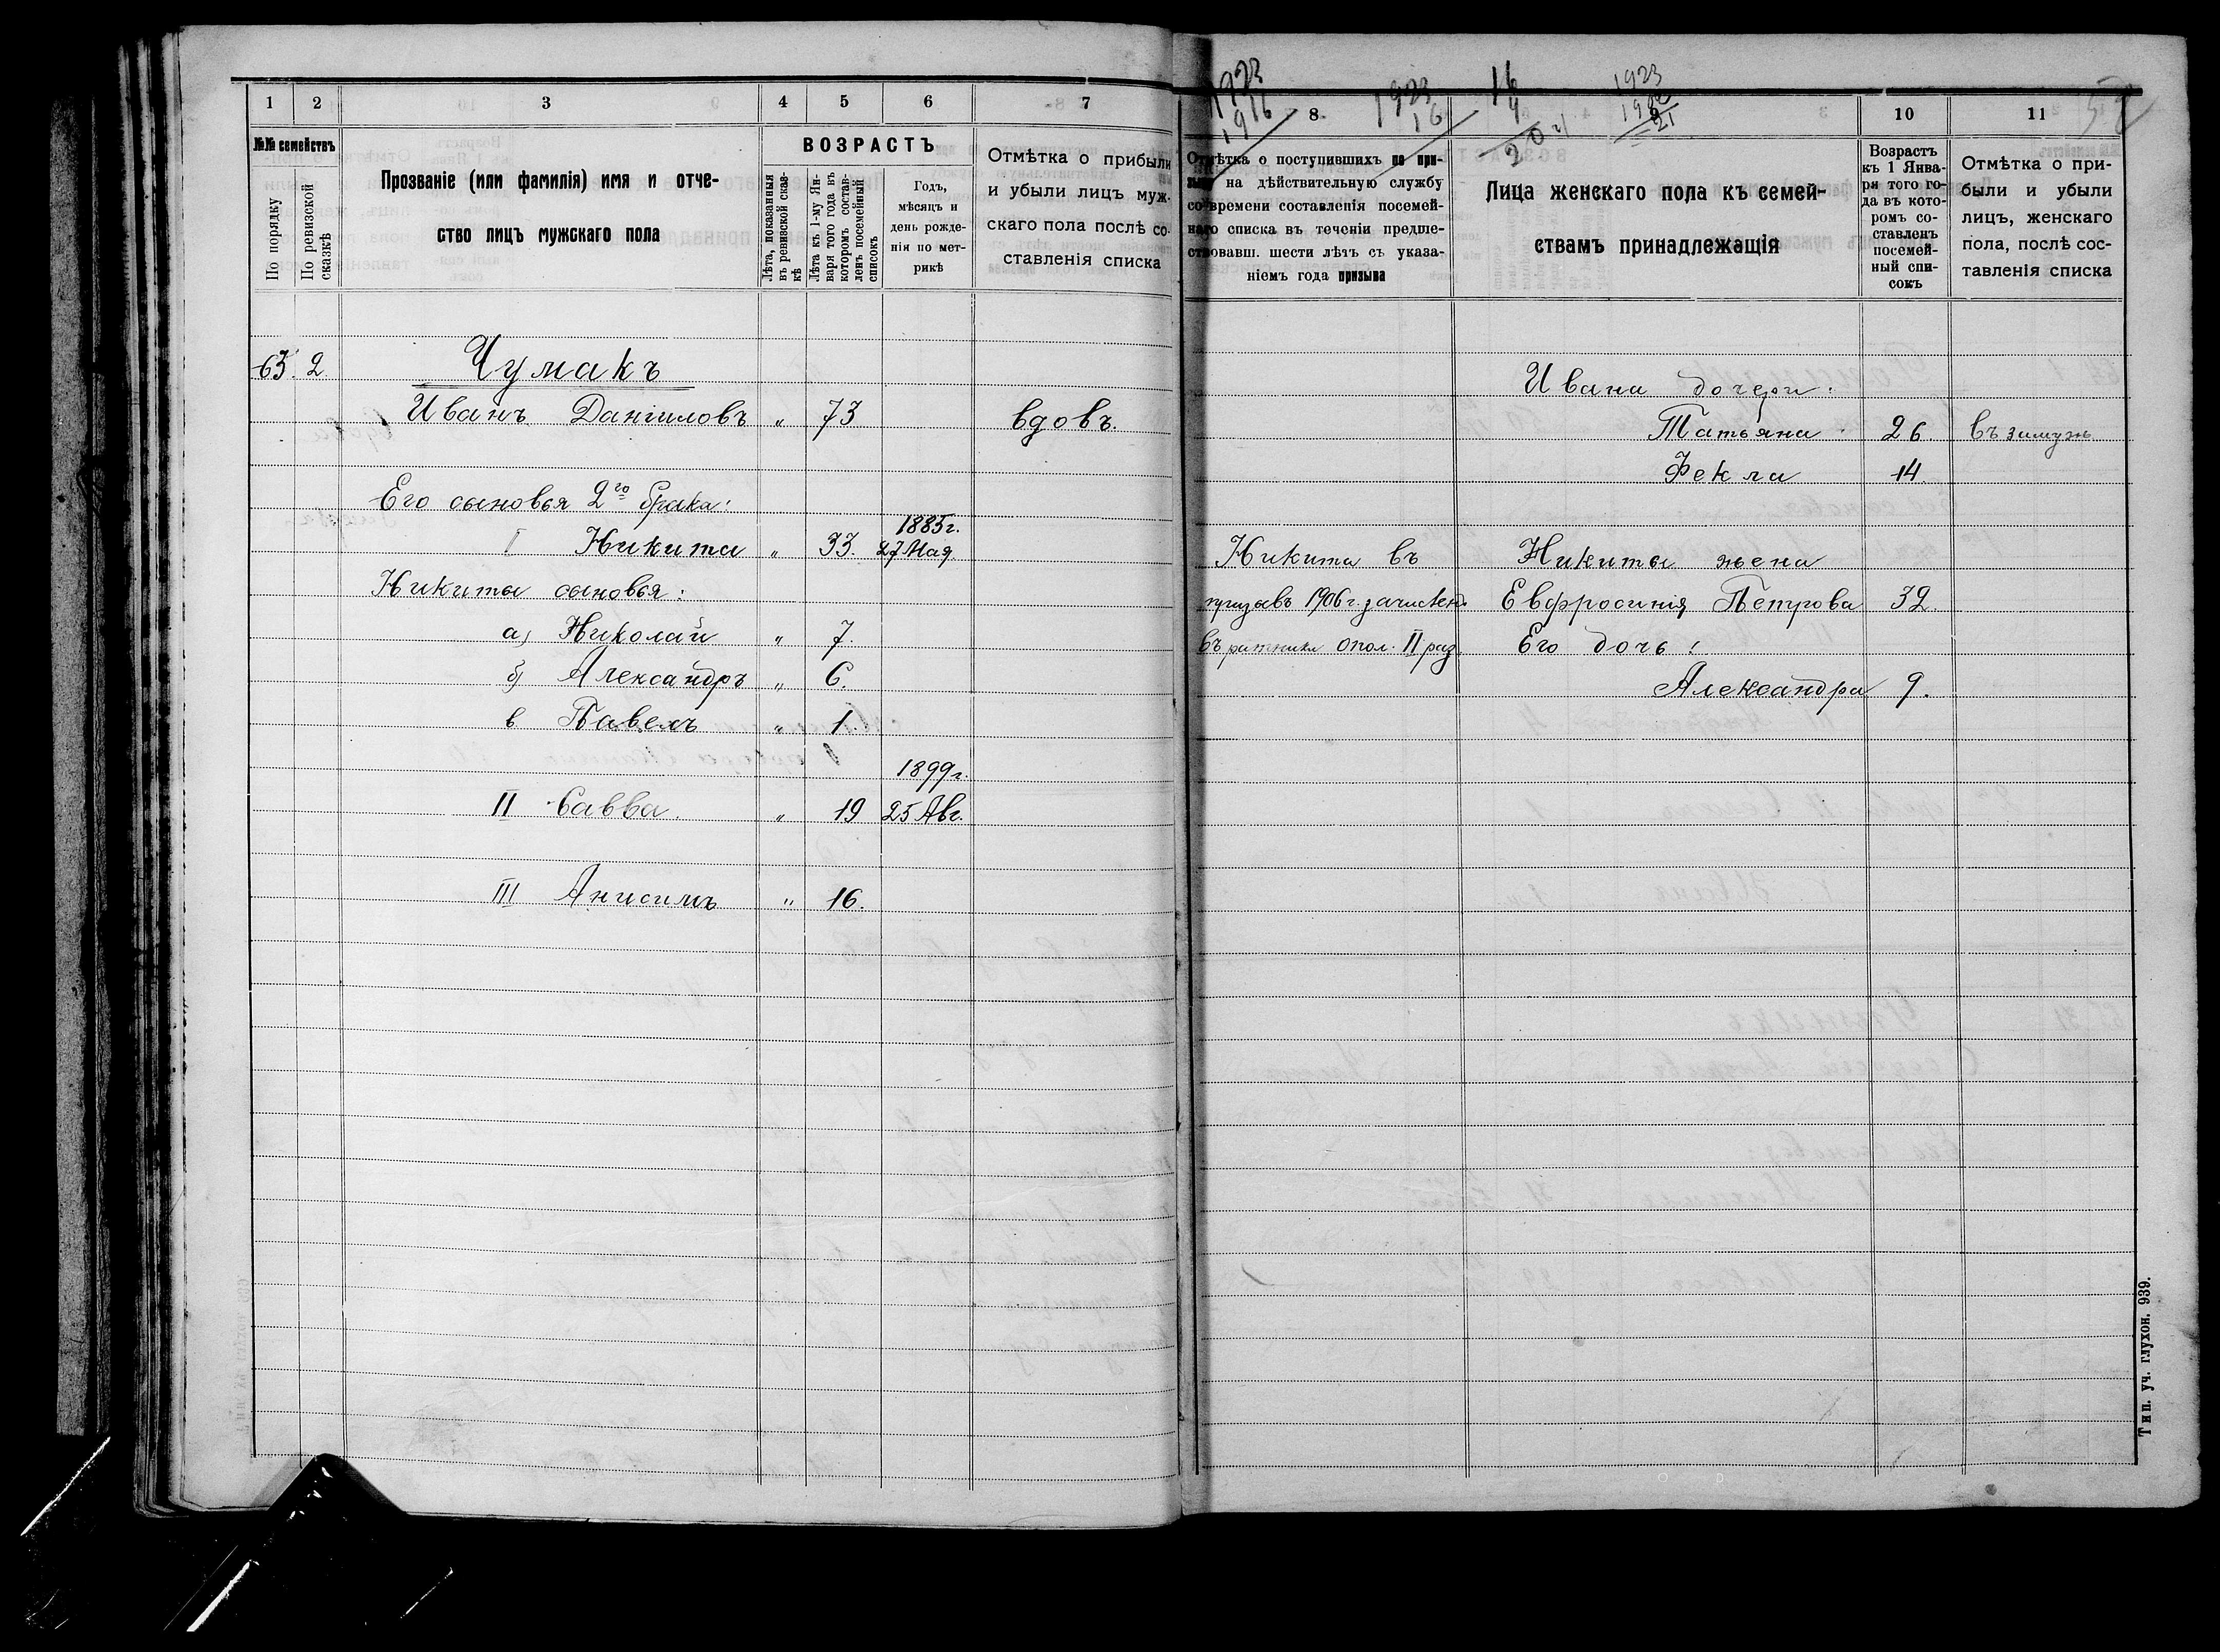 1 2 3 4 5 6 7
№№ семействъ
По порядку
По ревизской сказкѣ
Прозваніе (или фамилія) имя и отче-
ство лицъ мужскаго пола
ВОЗРАСТЪ
Лѣта, показанныя
въ ревизской сказ-
кѣ
Лѣта къ 1-му Ян-
варя того года въ
которомъ состав-
ленъ посемейный
списокъ
Годъ,
мѣсяцъ и
день рожде-
нія по мет-
рикѣ
Отмѣтка о прибыли
и убыли лицъ муж-
скаго пола послѣ со-
ставленія списка
63. 2. Чумакъ
Иванъ Даніиловъ " 73 вдовъ.
Его сыновья 2го брака:
1885г.
I Никита " 33. 27 Мая
Никиты сыновья:
а) Николай " 7.
б) Александръ " 6.
в Павелъ " 1.
1899г.
II Савва. " 19 25 Авг.
III Анисимъ " 16.
1923
1916
1923
16
16
4
20
1923
1902
21
8 9 10 11
Отмѣтка о поступившихъ по при-
зыву на дѣйствительную службу
со времени составленія посемей-
наго списка въ теченіи предше-
ствовавш. шести лѣтъ съ указа-
ніемъ года призыва
Лица женскаго пола къ семей-
ствамъ принадлежащія
Возрастъ
къ 1 Янва-
ря того го-
да въ кото-
ромъ со-
ставленъ
посемей-
ный спи-
сокъ
Отмѣтка о при-
были и убыли
лицъ, женскаго
пола, послѣ сос-
тавленія списка
Ивана дочери:
Татьяна 26. въ замуж
Фекла 14.
Никита въ Никиты жена
призывъ 1906 г. зачислен Евфросинія Петрова 32.
въ ратники опол. II раз. Его дочь:
Александра 9.
Тип. уч. глухон. 939.